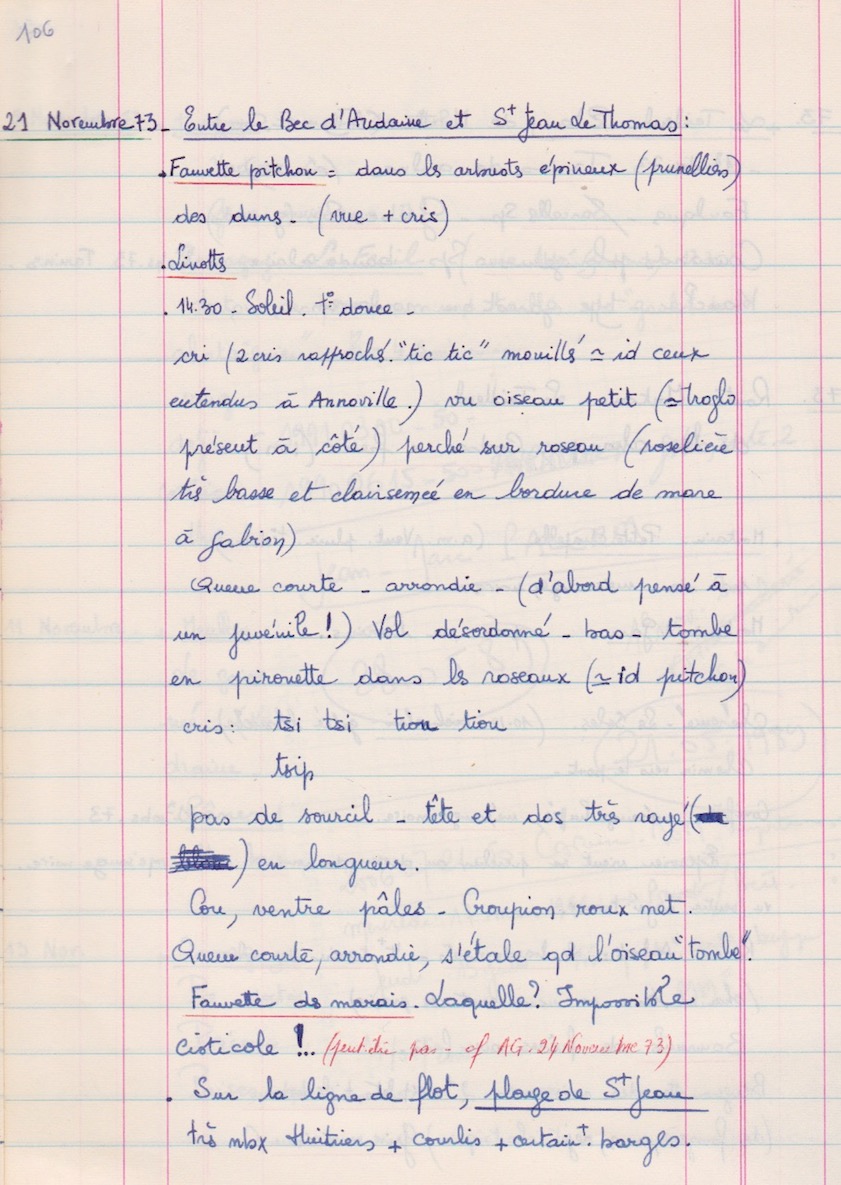 106
21 Novembre 73 - Entre le Bec d'Andaine et St Jean Le Thomas :
. Fauvette pitchou = dans ls arbusts épineux (prunelliers)
des duns - (vue + cris)
. Linotts
. 14.30 - Soleil. t° douce -
cri (2 cris rapprochés. "tic tic" mouillé ≃ id ceux
entendus à Annoville.) vu oiseau petit (≃ Troglo
présent à côté) perché sur roseau (roselière
très basse et clairsemée en bordure de mare
à gabion)
Queue courte - arrondie - (d'abord pensé à
un juvénile !) Vol désordonné - bas - tombe
en pirouette dans ls roseaux (≃ id pitchou)
cris : tsi tsi tiou tiou
tsip
pas de sourcil - tête et dos très rayé (
) en longueur.
Cou, ventre pâles - Croupion roux net.
Queue courte, arrondie, s'étale qd l'oiseau "tombe".
Fauvette ds marais. Laquelle ? Impossible
cisticole !.. (peut être pas - cf AG. 24 Novembre 73)
. Sur la ligne de flot, plage de St Jean
très nbx Huitriers + courlis + certain+. barges.